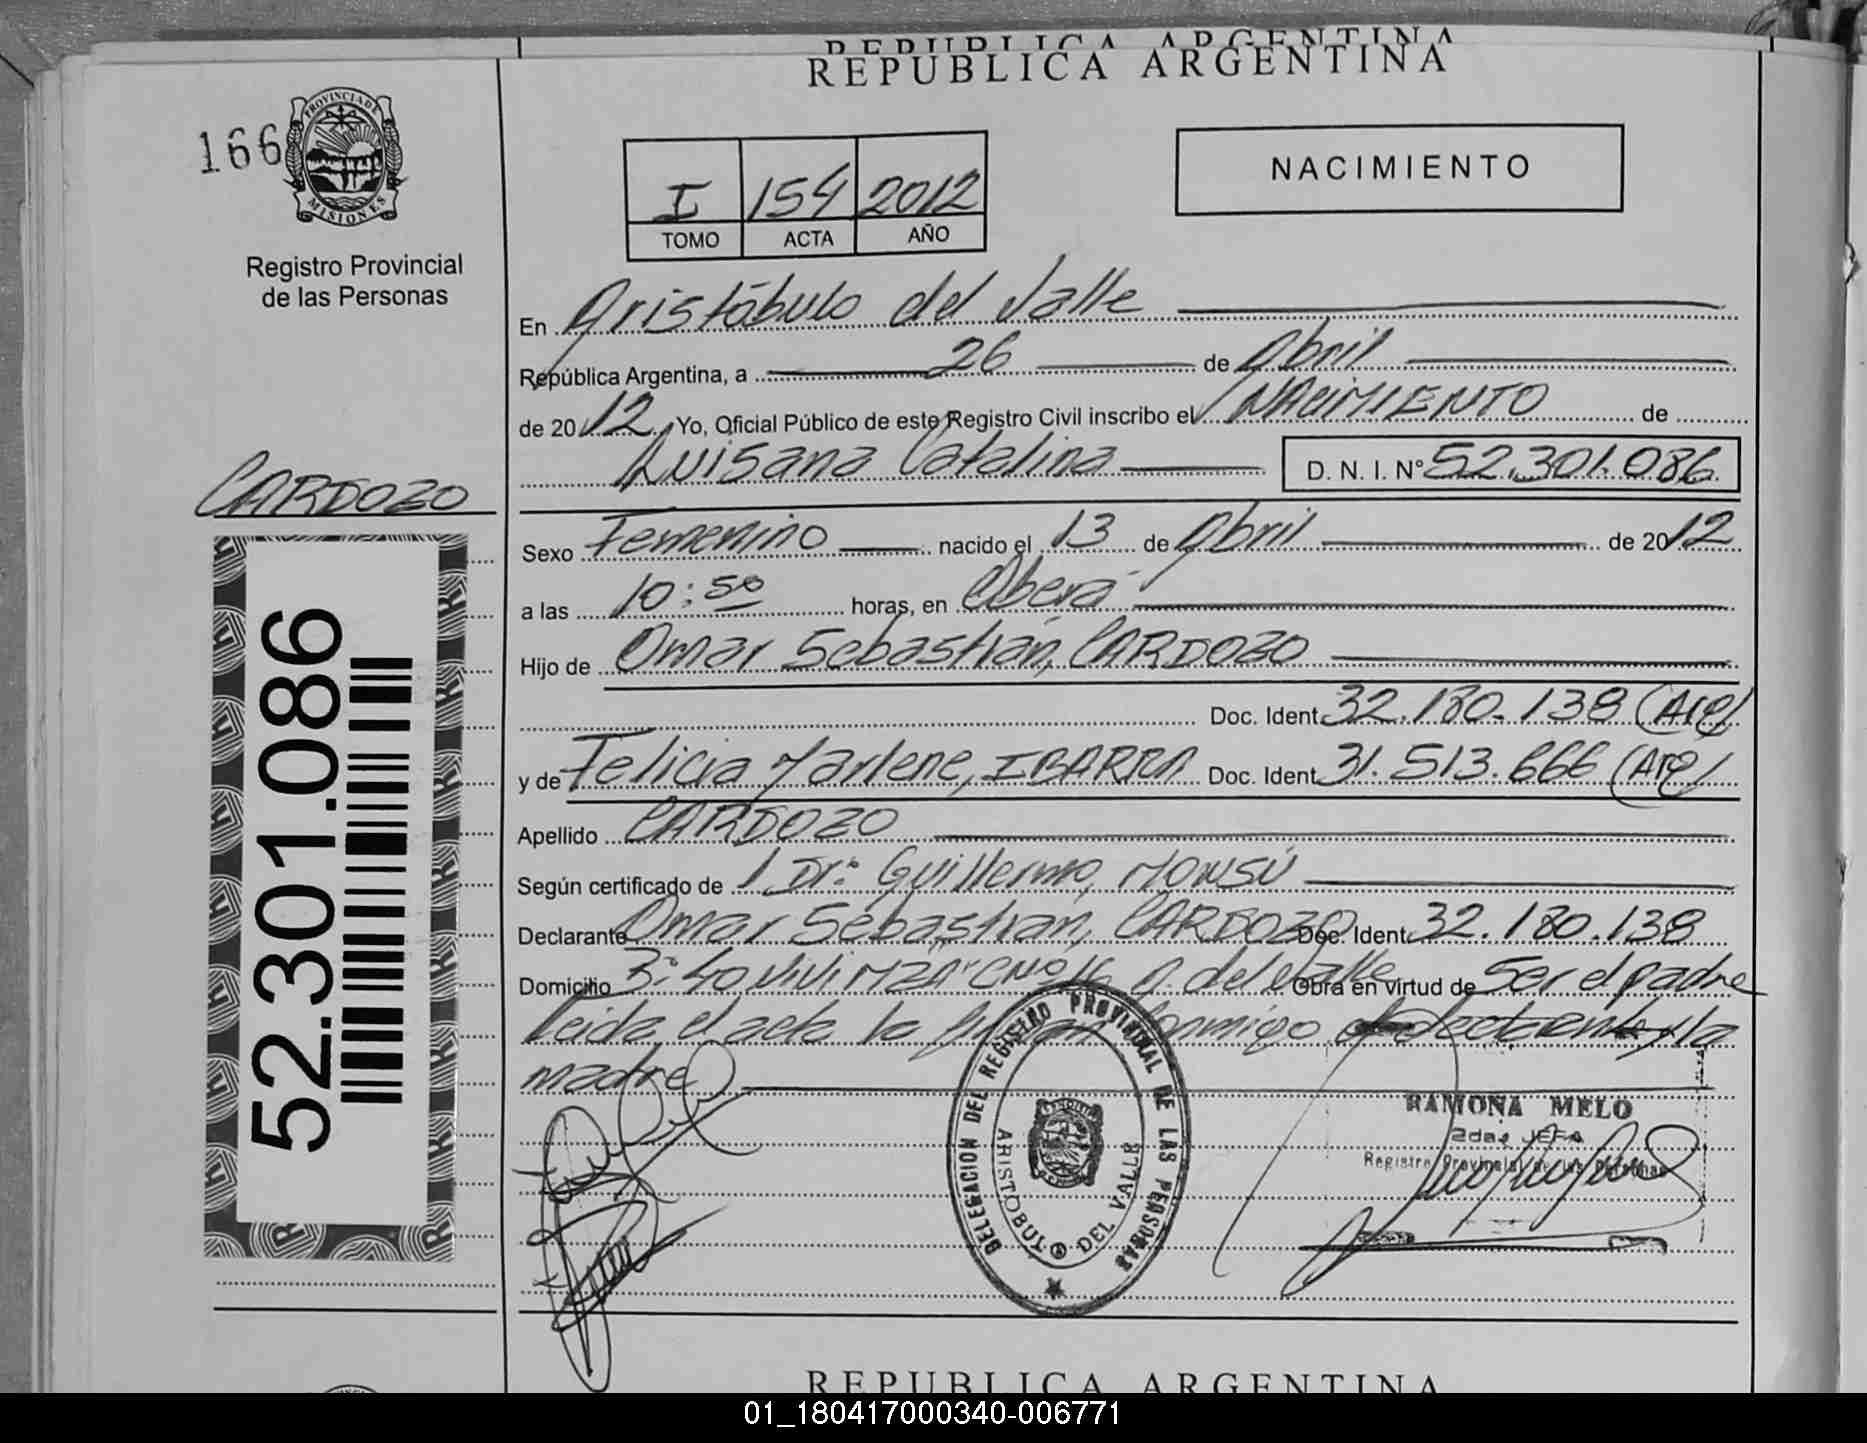 REPUBLICA ARGENTINA
REPUBLICA ARGENTINA
166
PROVINCIA DE
MISIONES
Registro Provincial
de las Personas
I 154 2012
TOMO ACTA AÑO
NACIMIENTO
En Aristóbulo del Valle
República Argentina, a 26 de Abril
de 2012 Yo, Oficial Público de este Registro Civil inscribo el NACIMIENTO de
Luisana Catalina D. N. I. N° 52.301.086
CARDOZO
52.301.086
Sexo Femenino nacido el 13 de Abril de 2012
a las 10:50 horas, en Oberá
Hijo de Omar Sebastián, CARDOZO
Doc. Ident. 32.180.138 (Arg)
y de Felicia Marlene, IBARRA Doc. Ident. 31.513.666 (Arg)
Apellido CARDOZO
Según certificado de Dr: Guillermo, MONSÚ
Declarante Omar Sebastian, CARDOZO Doc. Ident. 32.180.138
Domicilio A. del Valle Obra en virtud de Ser el padre
Leida el acta la firman Conmigo el declarante y la
madre
DELEGACION DEL REGISTRO PROVINCIAL DE LAS PERSONAS
ARISTOBULO DEL VALLE
RAMONA MELO
2da. JEFA
Registro Provincial de las Personas
REPUBLICA ARGENTINA
01_180417000340-006771